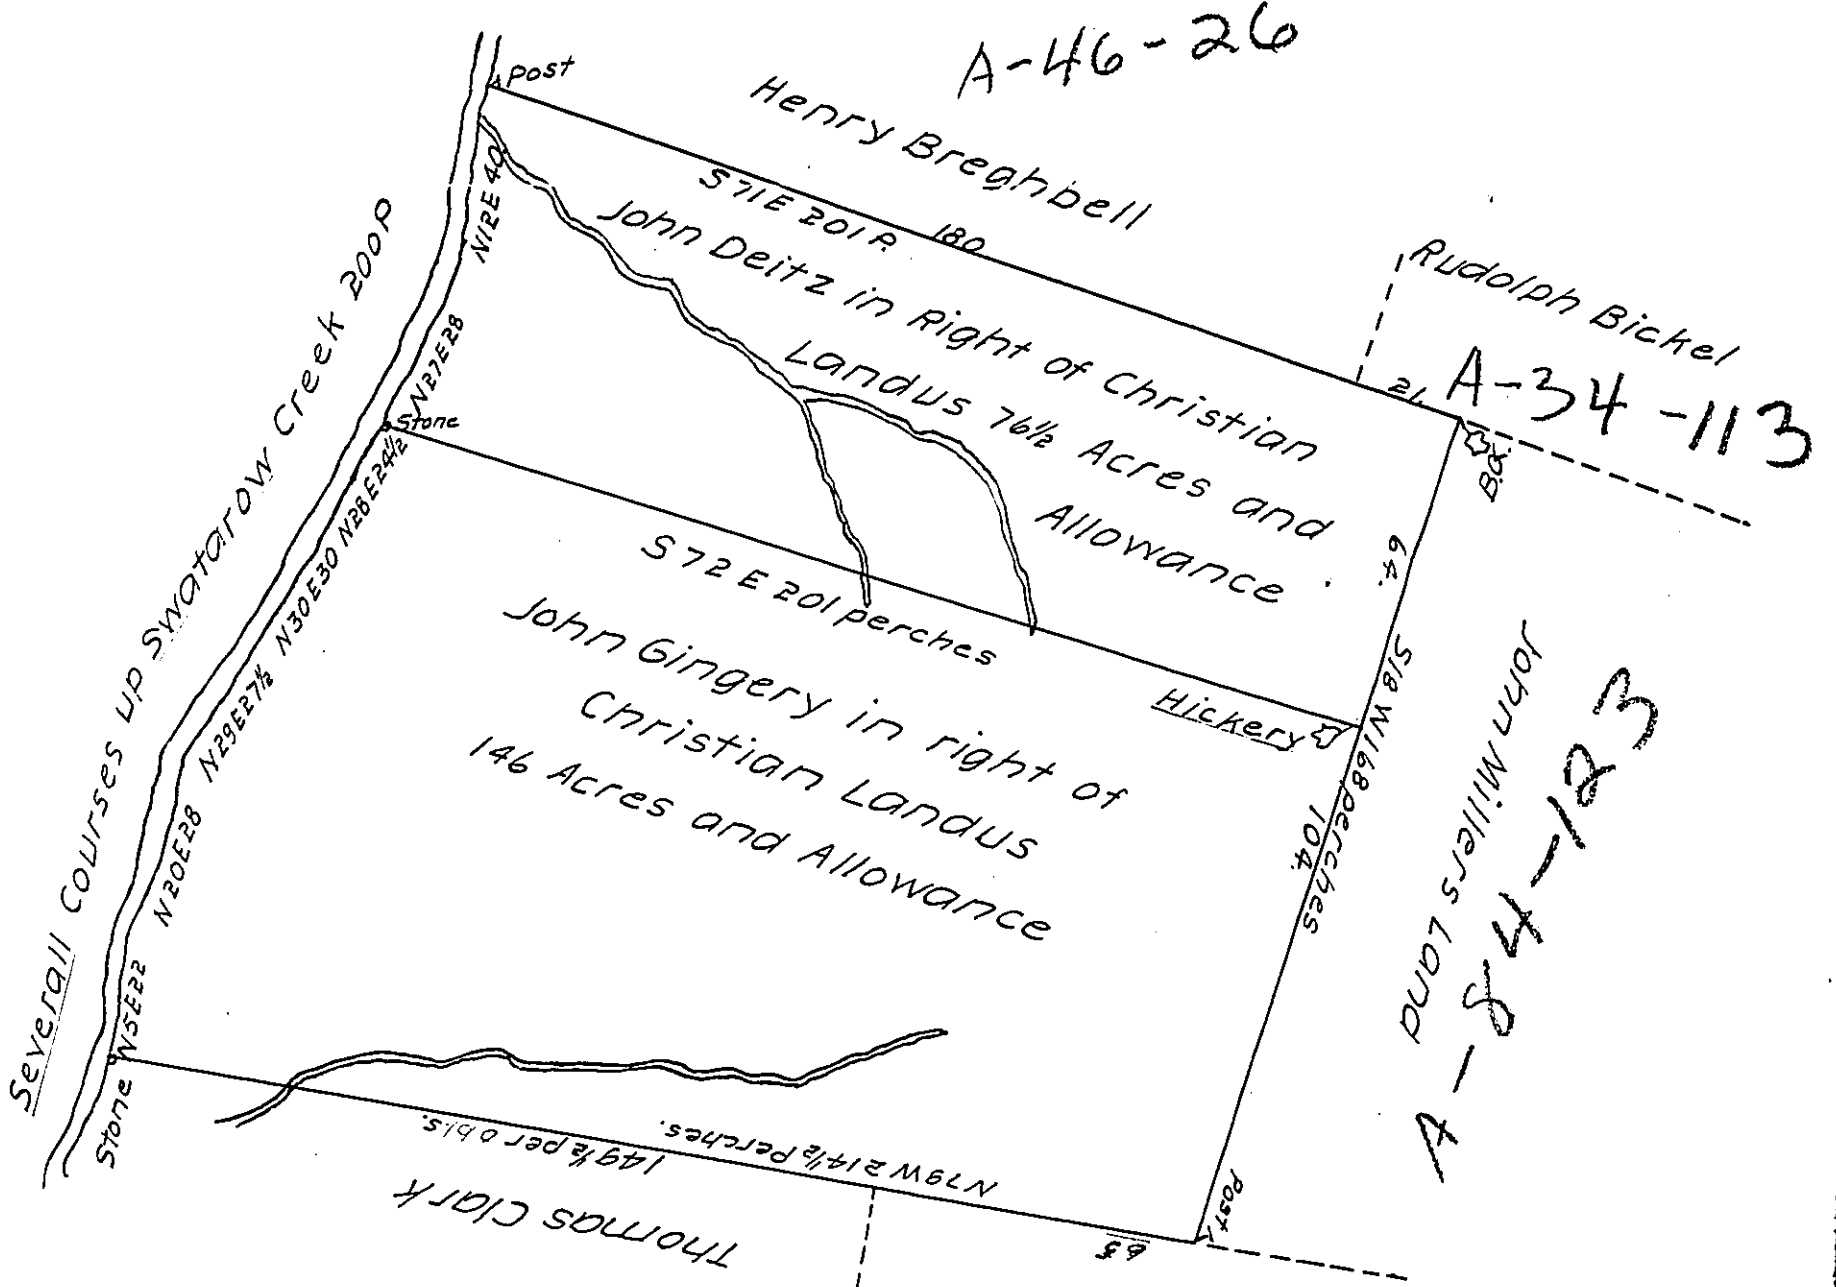 A-46-26
Post
Henry Breghbell
S 71 E 201 P.
180
Rudolph Bickel
A-34-113
21
B.O.
John Deitz in Right of Christian
Landus 76½ Acres and
Allowance
N12E 40
N27E28
Stone
N28E24½
N30E30
N29E27½
N20E28
N5E22
Stone
Severall Courses up Swatarow Creek 200P
S 72 E 201 perches
Hickery
64.
S18W168perches
104.
John Millers Land
A-84-123
John Gingery in right of
Christian Landus
146 Acres and Allowance
Post
N79W 214½ Perches.
149½ per obls.
65
Thomas Clark